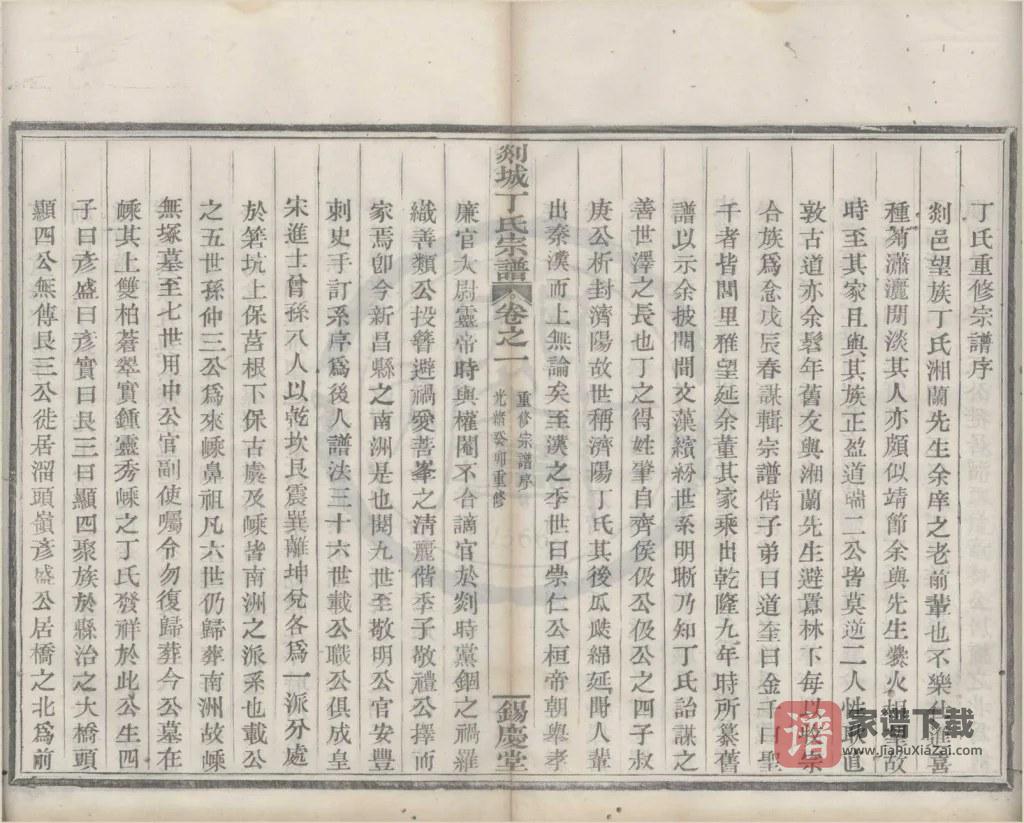 丁氏重修宗譜序
剡邑望族丁氏湘蘭先生余庠之老前輩也不樂仕進喜
種菊瀟灑閒淡其人亦頗似靖節余與先生爨火相望故
時至其家且與其族正盈道端二公皆莫逆二人性耿直
敦古道亦余髫年舊友與湘蘭先生避囂林下每以敬宗
合族爲念戊辰春謀輯宗譜偕子弟曰道奎曰金千曰聖
千者皆閭里雅望延余董其家乘出乾隆九年時所纂舊
譜以示余披閱間文藻繽紛世系明晰乃知丁氏詒謀之
善世澤之長也丁之得姓肇自齊侯伋公伋公之四子叔
庚公析封濟陽故世稱濟陽丁氏其後瓜瓞綿延閒人輩
出秦漢而上無論矣至漢之季世曰崇仁公桓帝朝舉孝
剡城丁氏宗譜 卷之一
重修宗譜序
光緒癸卯重修
一 錫慶堂
廉官大尉靈帝時與權閹不合謫官於剡時黨錮之禍羅
織善類公投簪避禍愛善峯之清麗偕季子敬禮公擇而
家焉卽今新昌縣之南洲是也閱九世至敬明公官安豐
刺史手訂系序爲後人譜法三十六世載公職公俱成皇
宋進士曾孫八人以乾坎艮震巽離坤兌各爲一派分處
於箬坑上保莒根下保古虞及嵊皆南洲之派系也載公
之五世孫仲三公爲來嵊鼻祖凡六世仍歸葬南洲故嵊
無塚墓至七世用中公官副使囑令勿復歸葬今公墓在
嵊其上雙柏蒼翠實鍾靈秀嵊之丁氏發祥於此公生四
子曰彥盛曰彥實曰艮三曰顯四聚族於縣治之大橋頭
顯四公無傳艮三公徙居溜頭嶺彥盛公居橋之北爲前
家谱下载
www.jiapuxiazai.com
谱